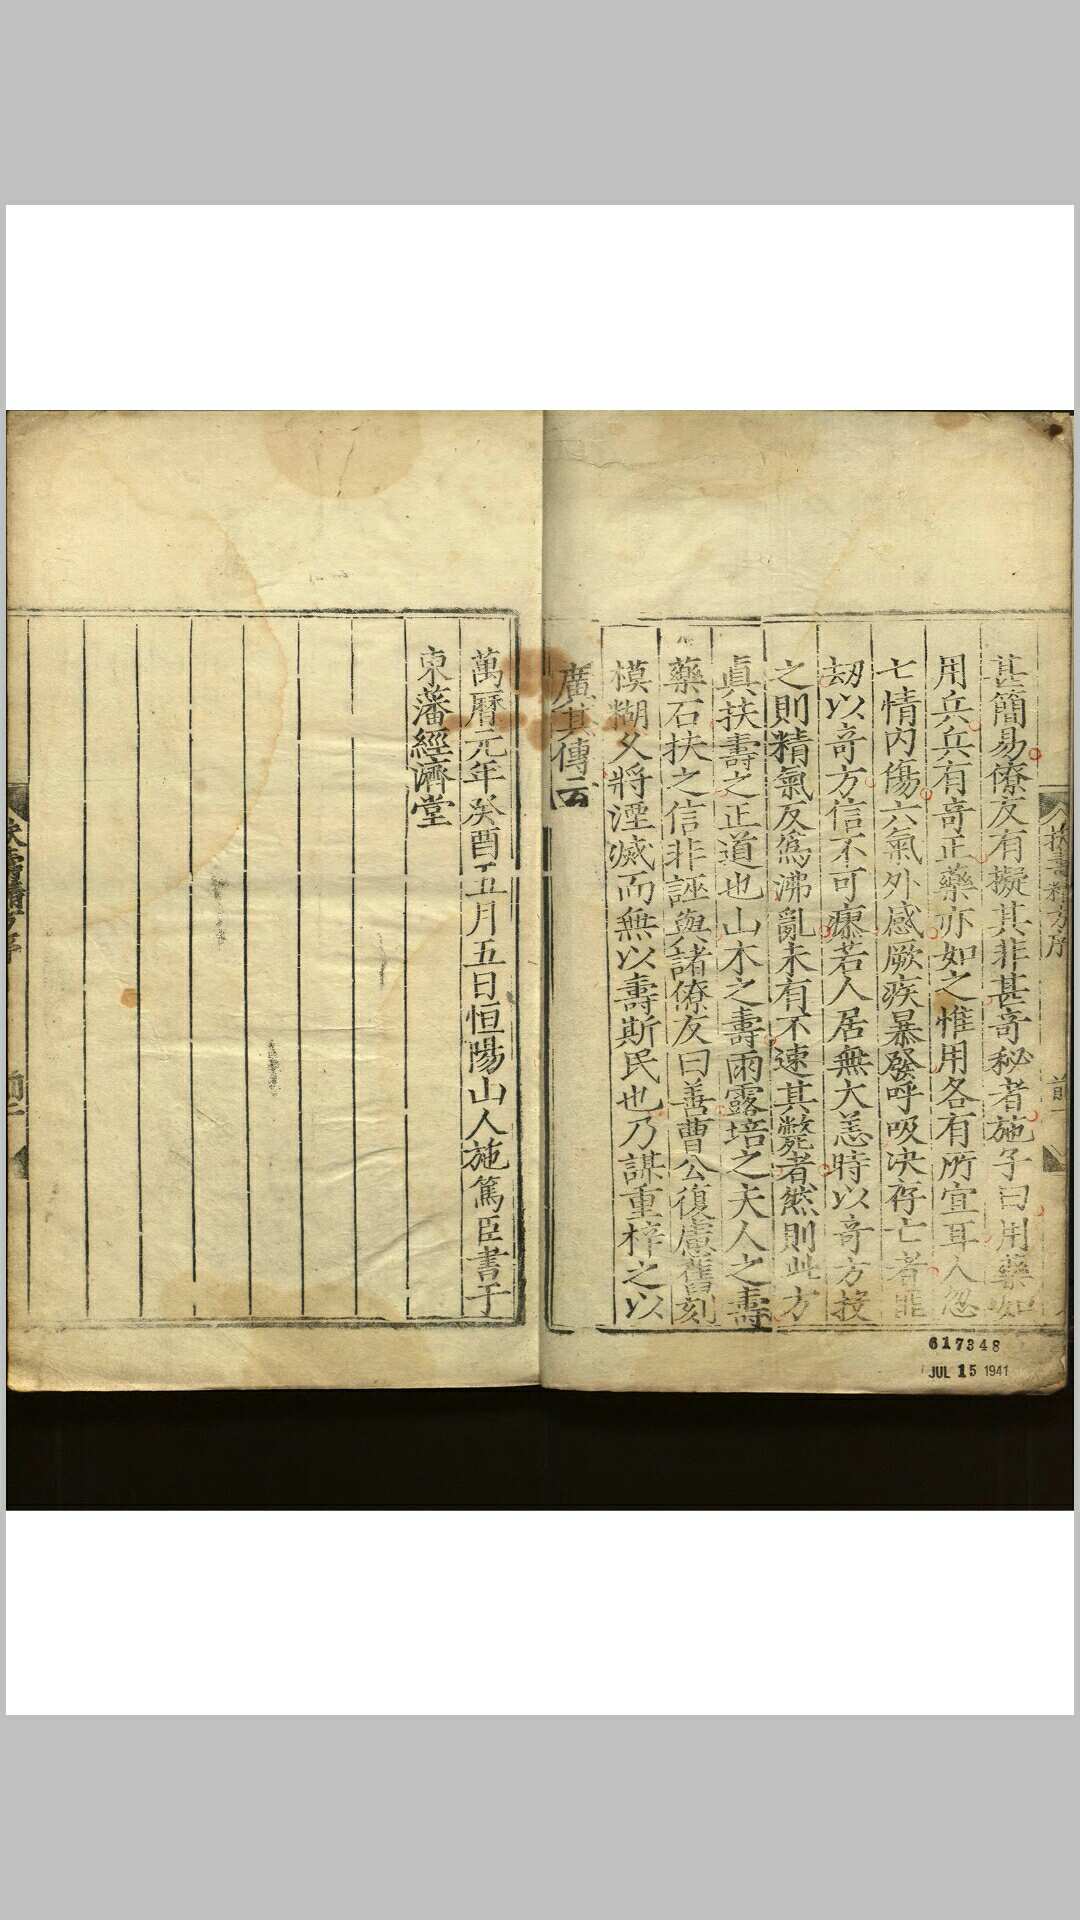 甚簡易僚友有擬其非甚奇秘者施子曰用藥如
用兵兵有奇正藥亦如之惟用各有所宜耳人忽
七情內傷六氣外感厥疾暴發呼吸決存亡者罪
劫以奇方信不可瘝若人居無大恙時以奇方投
之則精氣反爲沸亂未有不速其斃者然則此方
眞扶壽之正道也山木之壽雨露培之夫人之壽
藥石扶之信非誣與諸僚友曰善曹公復慮舊刻
模糊久將湮滅而無以壽斯民也乃謀重梓之以
廣其傳云
萬曆元年癸酉五月五日恒陽山人施篤臣書于
東藩經濟堂
扶壽精方序
前
617348
JUL 15 1941